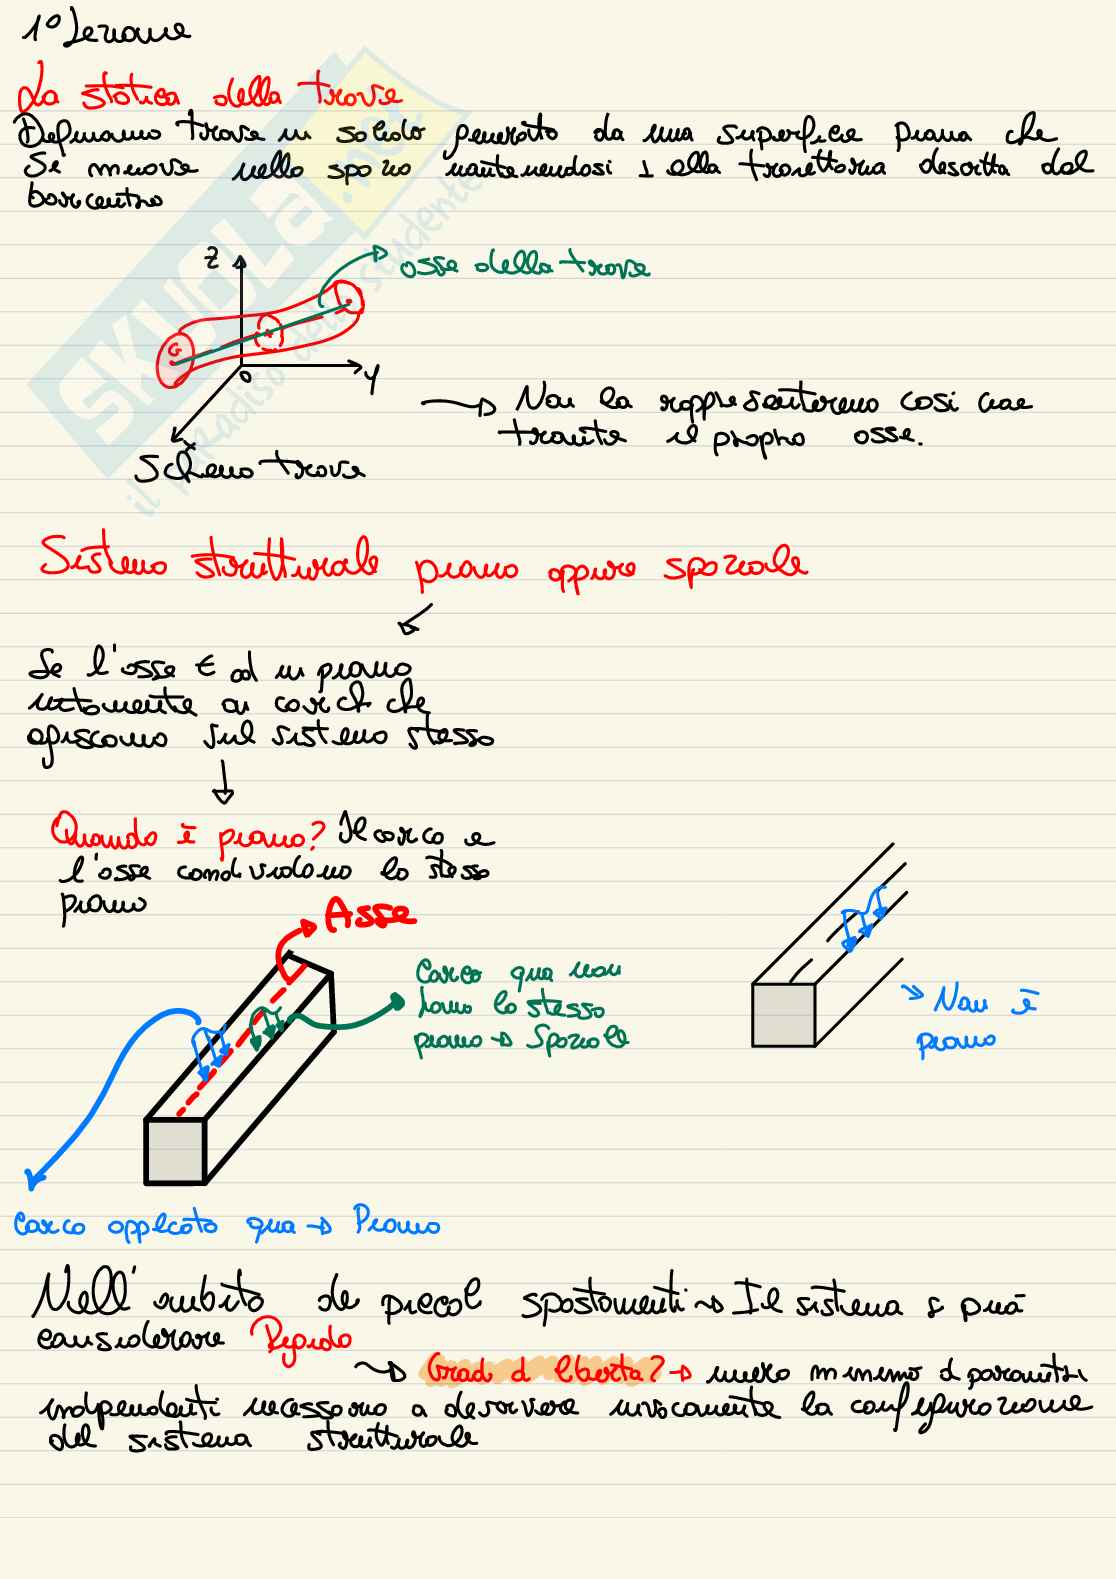 1° Lezione
La statica della trave
Definiamo trave un solido generato da una superfice piana che
Si muove nello spazio mantenendosi ⊥ alla traiettoria descritta dal
baricentro
z
asse della trave
G
o
y
x
→ Non la rappresenteremo così ma
tramite il proprio asse.
Schema trave
Sistema strutturale piano oppure spaziale
Se l'asse ∈ ad un piano
unitamente ai carichi che
agiscono sul sistema stesso
Quando è piano? Il carico e
l'asse condividono lo stesso
piano
Asse
Carico qua non
hanno lo stesso
piano → Spaziale
Non è
piano
Carico applicato qua → Piano
Nell'ambito dei piccoli spostamenti → Il sistema si può
considerare Rigido
→ Gradi di libertà? → numero minimo di parametri
indipendenti necessario a descrivere univocamente la configurazione
del sistema strutturale
SKUOLA.net
il paradiso dello studente